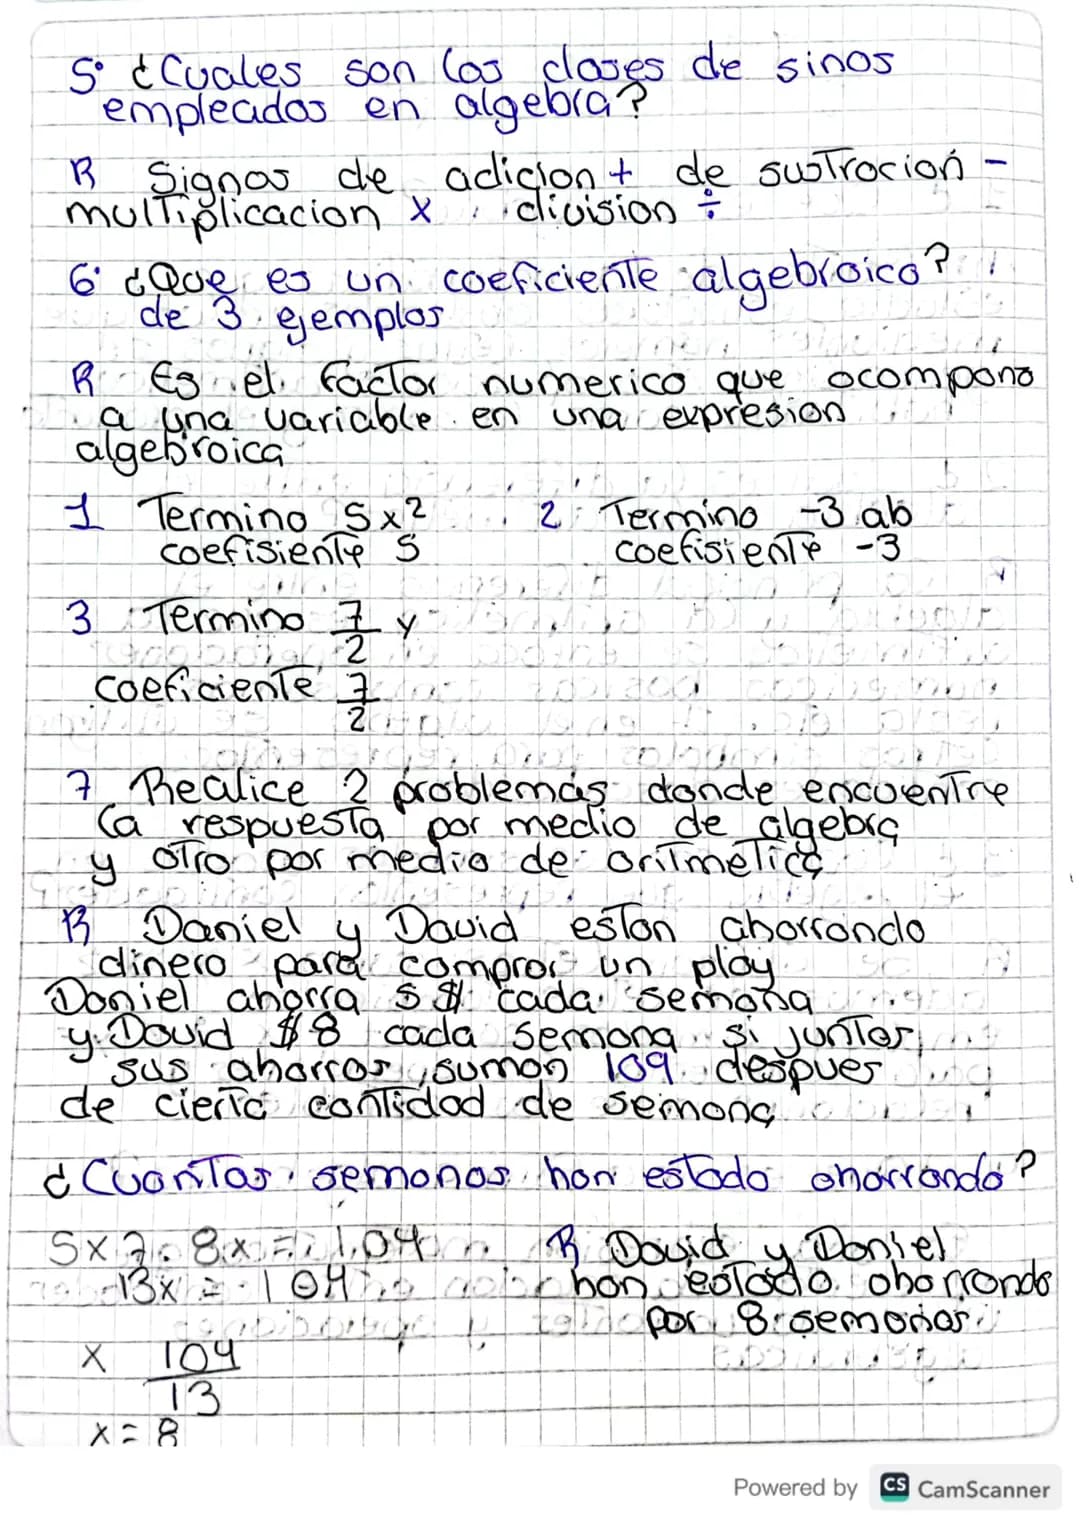 5° ¿Cuales son las clases de sinos
empleados en algebra?
R Signos de adicion + de sustracion -
multiplicacion x division ÷
6° ¿Que es un coeficiente algebraico?
de 3 ejemplos
R Es el factor numerico que acompana
a una variable en una expresion
algebraica
1 Termino 5x² 2 Termino -3 ab
coefisiente 5 coefisiente -3
3 Termino 7/2 y
coeficiente 7/2
7 Realice 2 problemas donde encuentre
la respuesta por medio de algebra
y otro por medio de aritmetica
R Daniel y David estan ahorrando
dinero para comprar un play
Daniel ahorra 5$ cada semana
y David $8 cada semana si juntar
sus ahorros suman 109 despues
de cierta cantidad de semana
¿Cuantas semanas han estado ahorrando?
5x 8x = 104 R David y Daniel
13x = 104 han estado ahorrando
por 8 semanas
x 104
13
x = 8
Powered by CS CamScanner